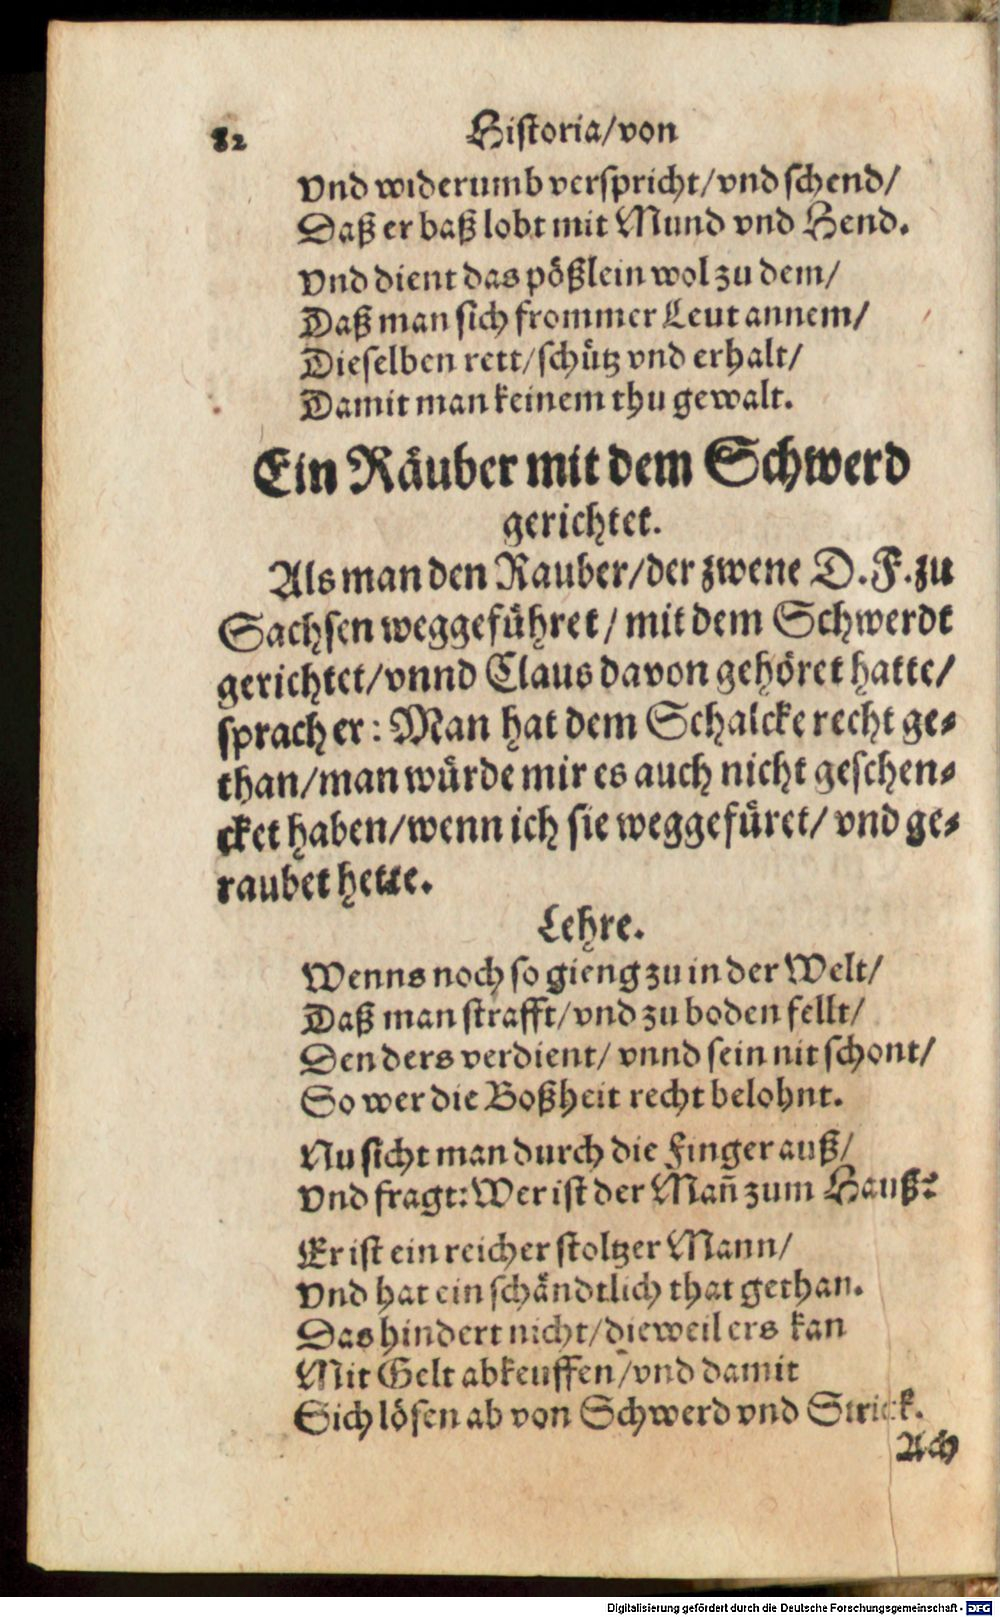 82
Historia/von
Vnd widerumb verspricht/vnd schend/
Daß er baß lobt mit Mund vnd Hend.
Vnd dient das pößlein wol zu dem/
Daß man sich frommer Leut annem/
Dieselben rett/schütz vnd erhalt/
Damit man keinem thu gewalt.
Ein Räuber mit dem Schwerd
gerichtet.
Als man den Rauber/der zwene D.F.zu
Sachsen weggeführet/mit dem Schwerdt
gerichtet/vnnd Claus davon gehöret hatte/
sprach er: Man hat dem Schalcke recht ge-
than/man würde mir es auch nicht geschen-
cket haben/wenn ich sie weggefüret/vnd ge-
raubet hette.
Lehre.
Wenns noch so gieng zu in der Welt/
Daß man strafft/vnd zu boden fellt/
Den ders verdient/vnnd sein nit schont/
So wer die Boßheit recht belohnt.
Nu sicht man durch die Finger auß/
Vnd fragt: Wer ist der Mañ zum Hauß?
Er ist ein reicher stoltzer Mann/
Vnd hat ein schändtlich that gethan.
Das hindert nicht/dieweil ers kan
Mit Gelt abkeuffen/vnd damit
Sich lösen ab von Schwerd vnd Strick.
Ach
Digitalisierung gefördert durch die Deutsche Forschungsgemeinschaft - DFG